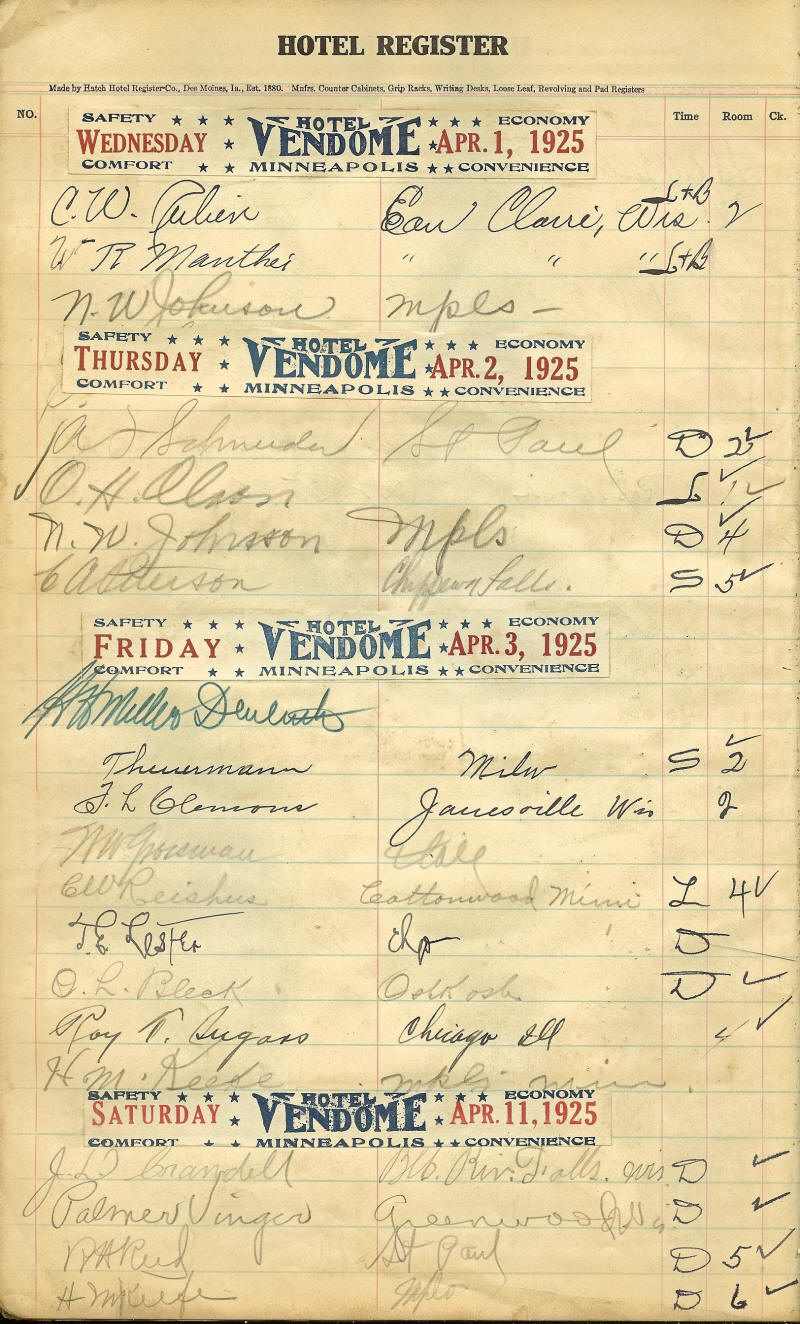 HOTEL REGISTER
Made by Hatch Hotel Register-Co., Des Moines, Ia., Est. 1880. Mnfrs. Counter Cabinets, Grip Racks, Writing Desks, Loose Leaf, Revolving and Pad Registers
NO. Time Room Ck.
SAFETY HOTEL ECONOMY
WEDNESDAY VENDOME APR. 1, 1925
COMFORT MINNEAPOLIS CONVENIENCE
L+B
C. W. Eau Claire, Wis. 2
W R Manthei " " " L+B
N. W Johnson mpls —
SAFETY HOTEL ECONOMY
THURSDAY VENDOME APR. 2, 1925
COMFORT MINNEAPOLIS CONVENIENCE
Schneider St Paul D 2 ✓
O. H. Olson L 1 ✓
N. W. Johnsson Mpls D 4 ✓
C A Peterson Chippewa Falls. S 5 ✓
SAFETY HOTEL ECONOMY
FRIDAY VENDOME APR. 3, 1925
COMFORT MINNEAPOLIS CONVENIENCE
Miller
Theuermann Milw S 2 ✓
F. L Clemons Janesville Wis 2
C W Reishus Cottonwood Minn L 4 ✓
T. E. Lester D
O. L. Bleck Oskkosh D ✓
Roy T. Chicago Ill 4 ✓
H M. Keefe mpls minn.
SAFETY HOTEL ECONOMY
SATURDAY VENDOME APR. 11, 1925
COMFORT MINNEAPOLIS CONVENIENCE
J. D Crandell Blk. Riv. Falls. Wis D ✓
Palmer Vinger Greenwood Wis D ✓
St Paul D 5 ✓
H M Keefe Mpls D 6 ✓